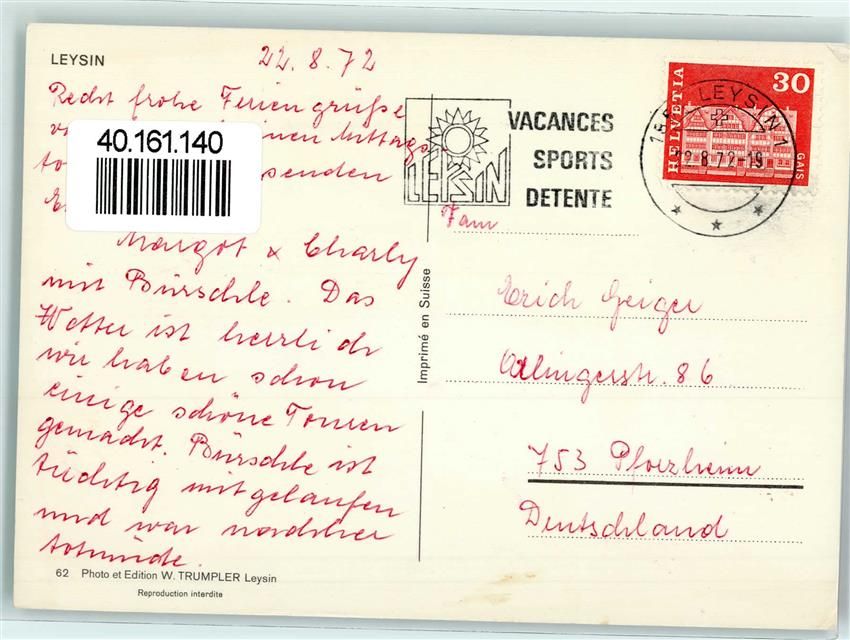 LEYSIN
22. 8. 72
Recht frohe Feriengrüße
40.161.140
senden
Margot & Charly
mit Bürschle. Das
Wetter ist herrlich
wir haben schon
einige schöne Touren
gemacht. Bürschle ist
tüchtig mitgelaufen
und war nachher
totmüde.
62 Photo et Edition W. TRUMPLER Leysin
Reproduction interdite
Imprimé en Suisse
LEYSIN
VACANCES
SPORTS
DETENTE
LEYSIN 1
22-8-72-19
HELVETIA
30
GAIS
Fam
Erich Geiger
Ollingerstr. 86
753 Pforzheim
Deutschland